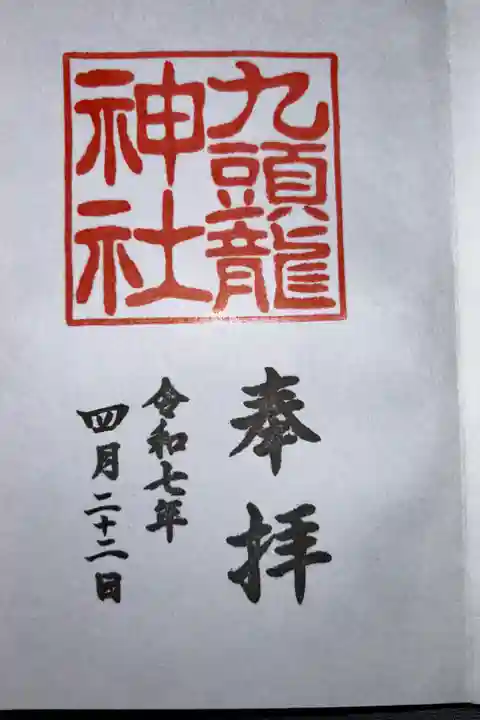 九頭龍
神社
奉拝
令和七年
四月二十二日